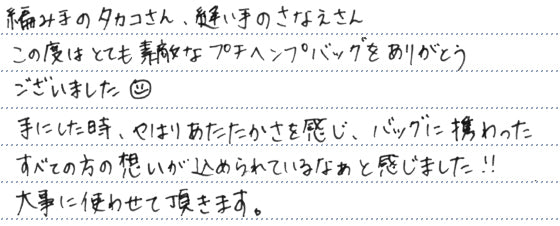 編み手のタカコさん、縫い手のさなえさん
この度はとても素敵なプチヘンプバッグをありがとう
ございました☺
手にした時、やはりあたたかさを感じ、バッグに携わった
すべての方の想いが込められているなぁと感じました!!
大事に使わせて頂きます。